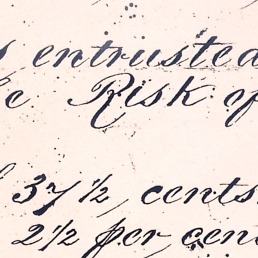 entrusted
Risk of
37½ cents
2½ per cen